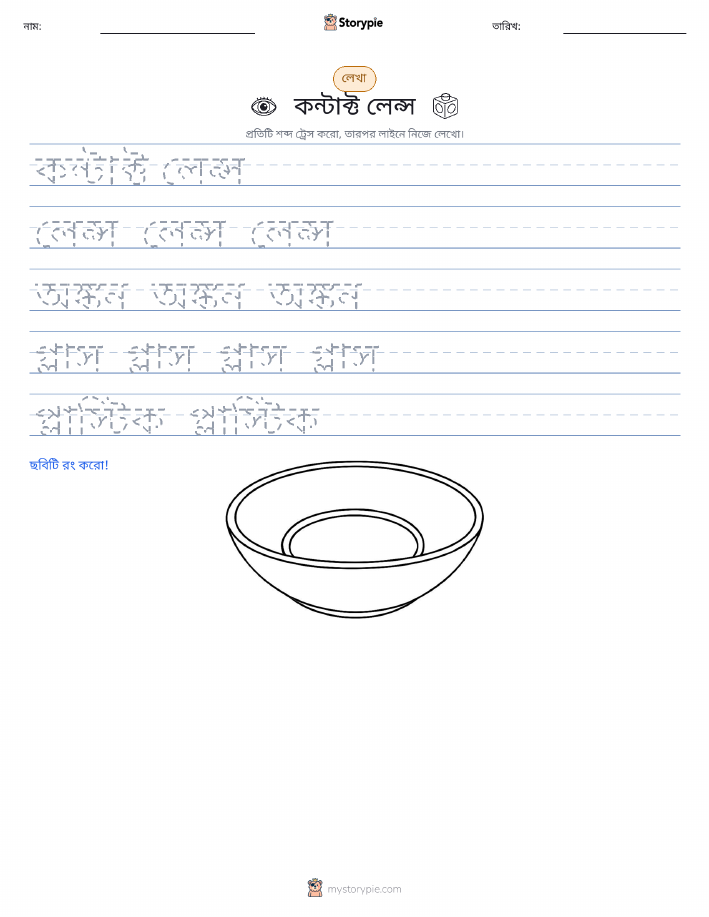 নাম:
Storypie
তারিখ:
লেখা
কন্টাক্ট লেন্স
প্রতিটি শব্দ ট্রেস করো, তারপর লাইনে নিজে লেখো।
কন্টাক্ট লেন্স
লেন্স লেন্স লেন্স
অঙ্কন অঙ্কন অঙ্কন
গ্লাস গ্লাস গ্লাস গ্লাস
প্লাস্টিক প্লাস্টিক
ছবিটি রং করো!
mystorypie.com